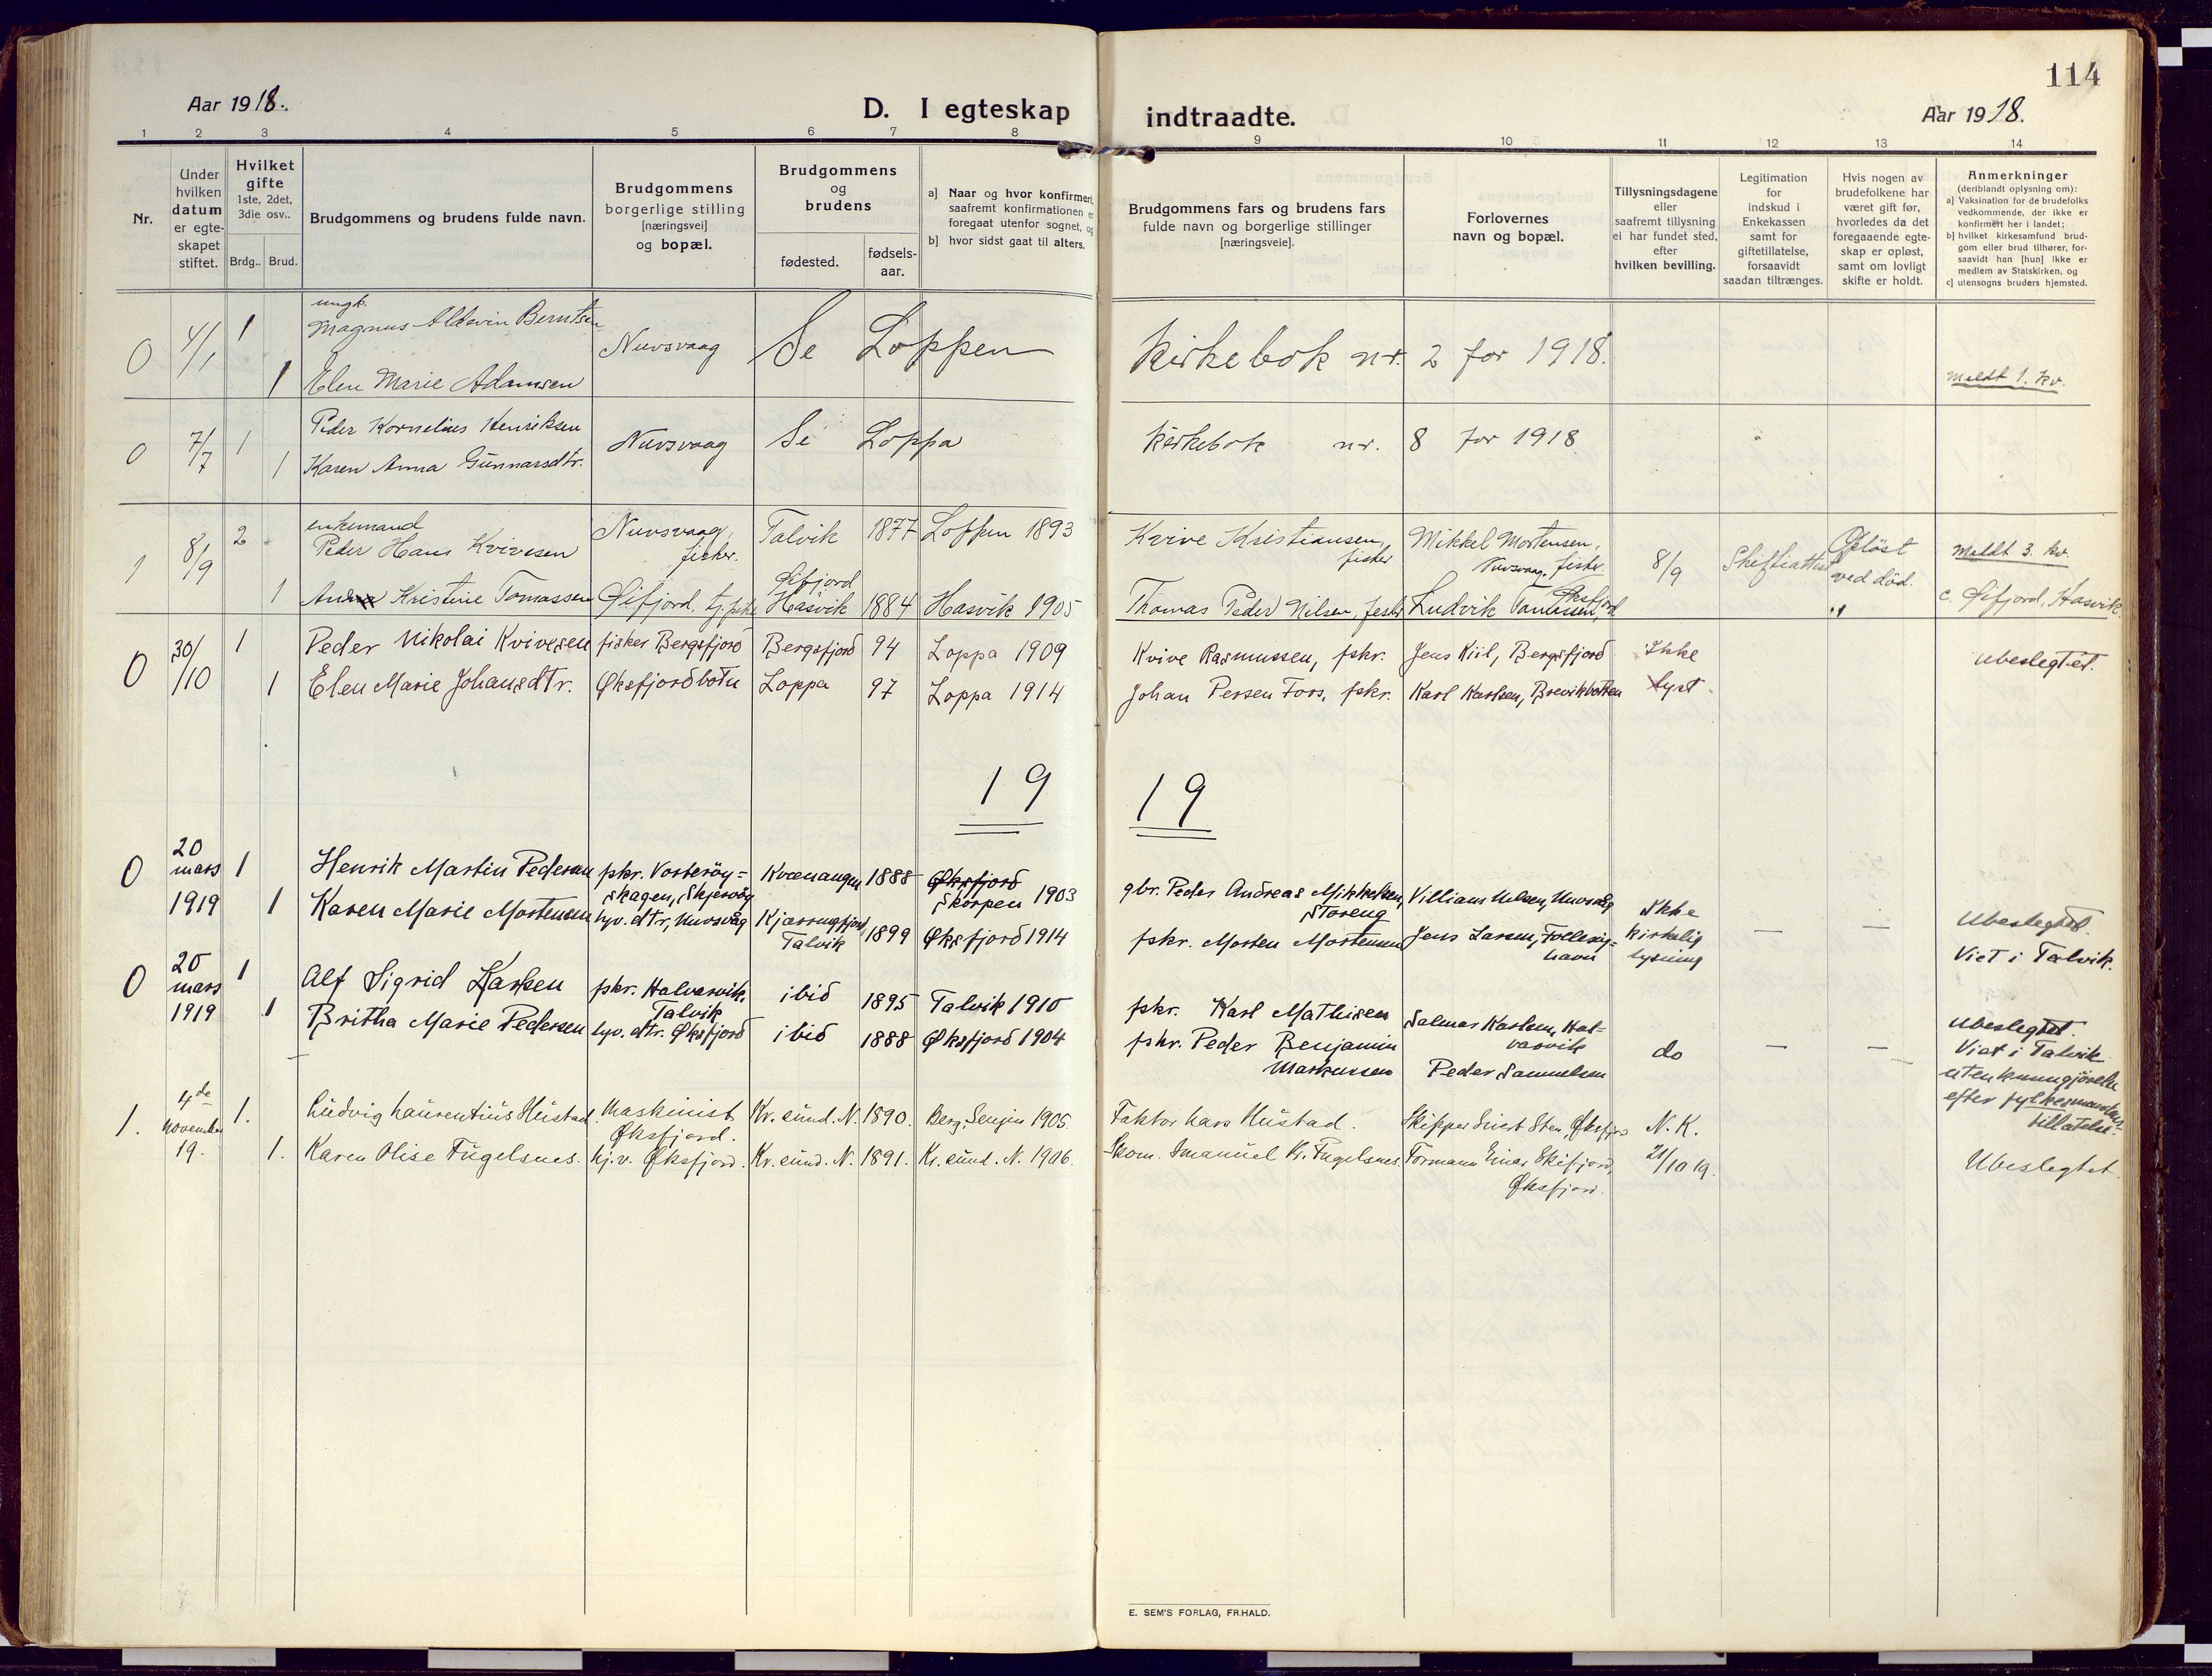 114
Aar 1918.
D. I egteskap indtraadte.
Aar 1918.
1 2 3 4 5 6 7 8 9 10 11 12 13 14
Nr.
Under hvilken datum er egteskapet stiftet.
Hvilket gifte 1ste, 2det, 3die osv..
Brdg.. Brud.
Brudgommens og brudens fulde navn.
Brudgommens borgerlige stilling [næringsvei] og bopæl.
Brudgommens og brudens
fødested. fødselsaar.
a] Naar og hvor konfirmert, saafremt konfirmationen er foregaat utenfor sognet, og
b] hvor sidst gaat til alters.
Brudgommens fars og brudens fars fulde navn og borgerlige stillinger [næringsveie].
Forlovernes navn og bopæl.
Tillysningsdagene eller saafremt tillysning ei har fundet sted, efter hvilken bevilling.
Legitimation for indskud i Enkekassen samt for giftetillatelse, forsaavidt saadan tiltrænges.
Hvis nogen av brudefolkene har været gift før, hvorledes da det foregaaende egteskap er opløst, samt om lovligt skifte er holdt.
Anmerkninger (deriblandt oplysning om):
a] Vaksination for de brudefolks vedkommende, der ikke er konfirmert her i landet;
b] hvilket kirkesamfund brudgom eller brud tilhører, forsaavidt han [hun] ikke er medlem av Statskirken, og
c] utensogns bruders hjemsted.
0 4/1 1 ungk. Magnus Aldevin Berntsen Nuvsvaag Se Loppen Kirkebok nr. 2 for 1918.
1 Elen Marie Adamsen meldt 1. kv.
0 7/7 1 Peder Kornelius Henriksen Nuvsvaag Se Loppa Kirkebok nr. 8 for 1918
1 Karen Anna Gunnarsdtr.
1 8/9 2 enkemand Peder Hans Kvivesen Nuvsvaag, fiskr. Talvik 1877 Loppen 1893 Kvive Kristiansen, fisker Mikkel Mortensen, Nuvsvaag, fiskr. 8/9 Skifteattest Opløst ved død. meldt 3. kv.
1 Kristine Tomassen Øifjord, Øifjord Hasvik 1884 Hasvik 1905 Thomas Peder Nilsen, Ludvik Øksfjord " c. Øifjord, Hasvik
0 30/10 1 Peder Nikolai Kvivesen fisker Bergsfjord Bergsfjord 94 Loppa 1909 Kvive Rasmussen, fskr. Jens Kiil, Bergsfjord Ikke lyst ubeslegtet.
1 Elen Marie Johansdtr. Øksfjordbotn Loppa 97 Loppa 1914 Johan Persen Fors, fskr. Karl Karlsen, Brevikbotten
19 19
0 20 mars 1919 1 Henrik Martin Pedersen fskr. Vorterøy=skagen, Skjervøy Kvænangen 1888 Øksfjord Skorpen 1903 gbr. Peder Andreas Mikkelsen, Storeng Villiam Nilsen, Nuvsvåg Ikke kirkelig lysning — — Ubeslegtet.
1 Karen Marie Mortensen hyv. dtr, Nuvsvåg Kjærringfjord, Talvik 1899 Øksfjord 1914 fskr. Morten Mortensen Jens Larsen, havn Viet i Talvik.
0 20 mars 1919 1 Alf Sigrid Karlsen fskr. Halvarvik, Talvik ibid 1895 Talvik 1910 fskr. Karl Mathisen Salmar Karlsen, Halvarvik do — — ubeslegtet.
1 Britha Marie Pedersen hyv. dtr. Øksfjord ibid 1888 Øksfjord 1904 fskr. Peder Benjamin Markussen Peder Samuelsen Viet i Talvik uten kunngjørelse efter fylkesmandens tillatelse.
1. 4de november 19. 1. Ludvig Laurentius Hustad Maskinist, Øksfjord. Kr.sund. N. 1890. Berg, Senjen 1905. Faktor Lars Hustad. Skipper Sten, Øksfjord N. K. 21/10 19.
1. Karen Olise Fugelsnes. hj.v. Øksfjord. Kr.sund. N. 1891. Kr.sund. N. 1906. Skom. Emanuel Kr. Fugelsnes. Formann Einar Øksfjord. Ubeslegtet
E. SEM'S FORLAG, FR.HALD.